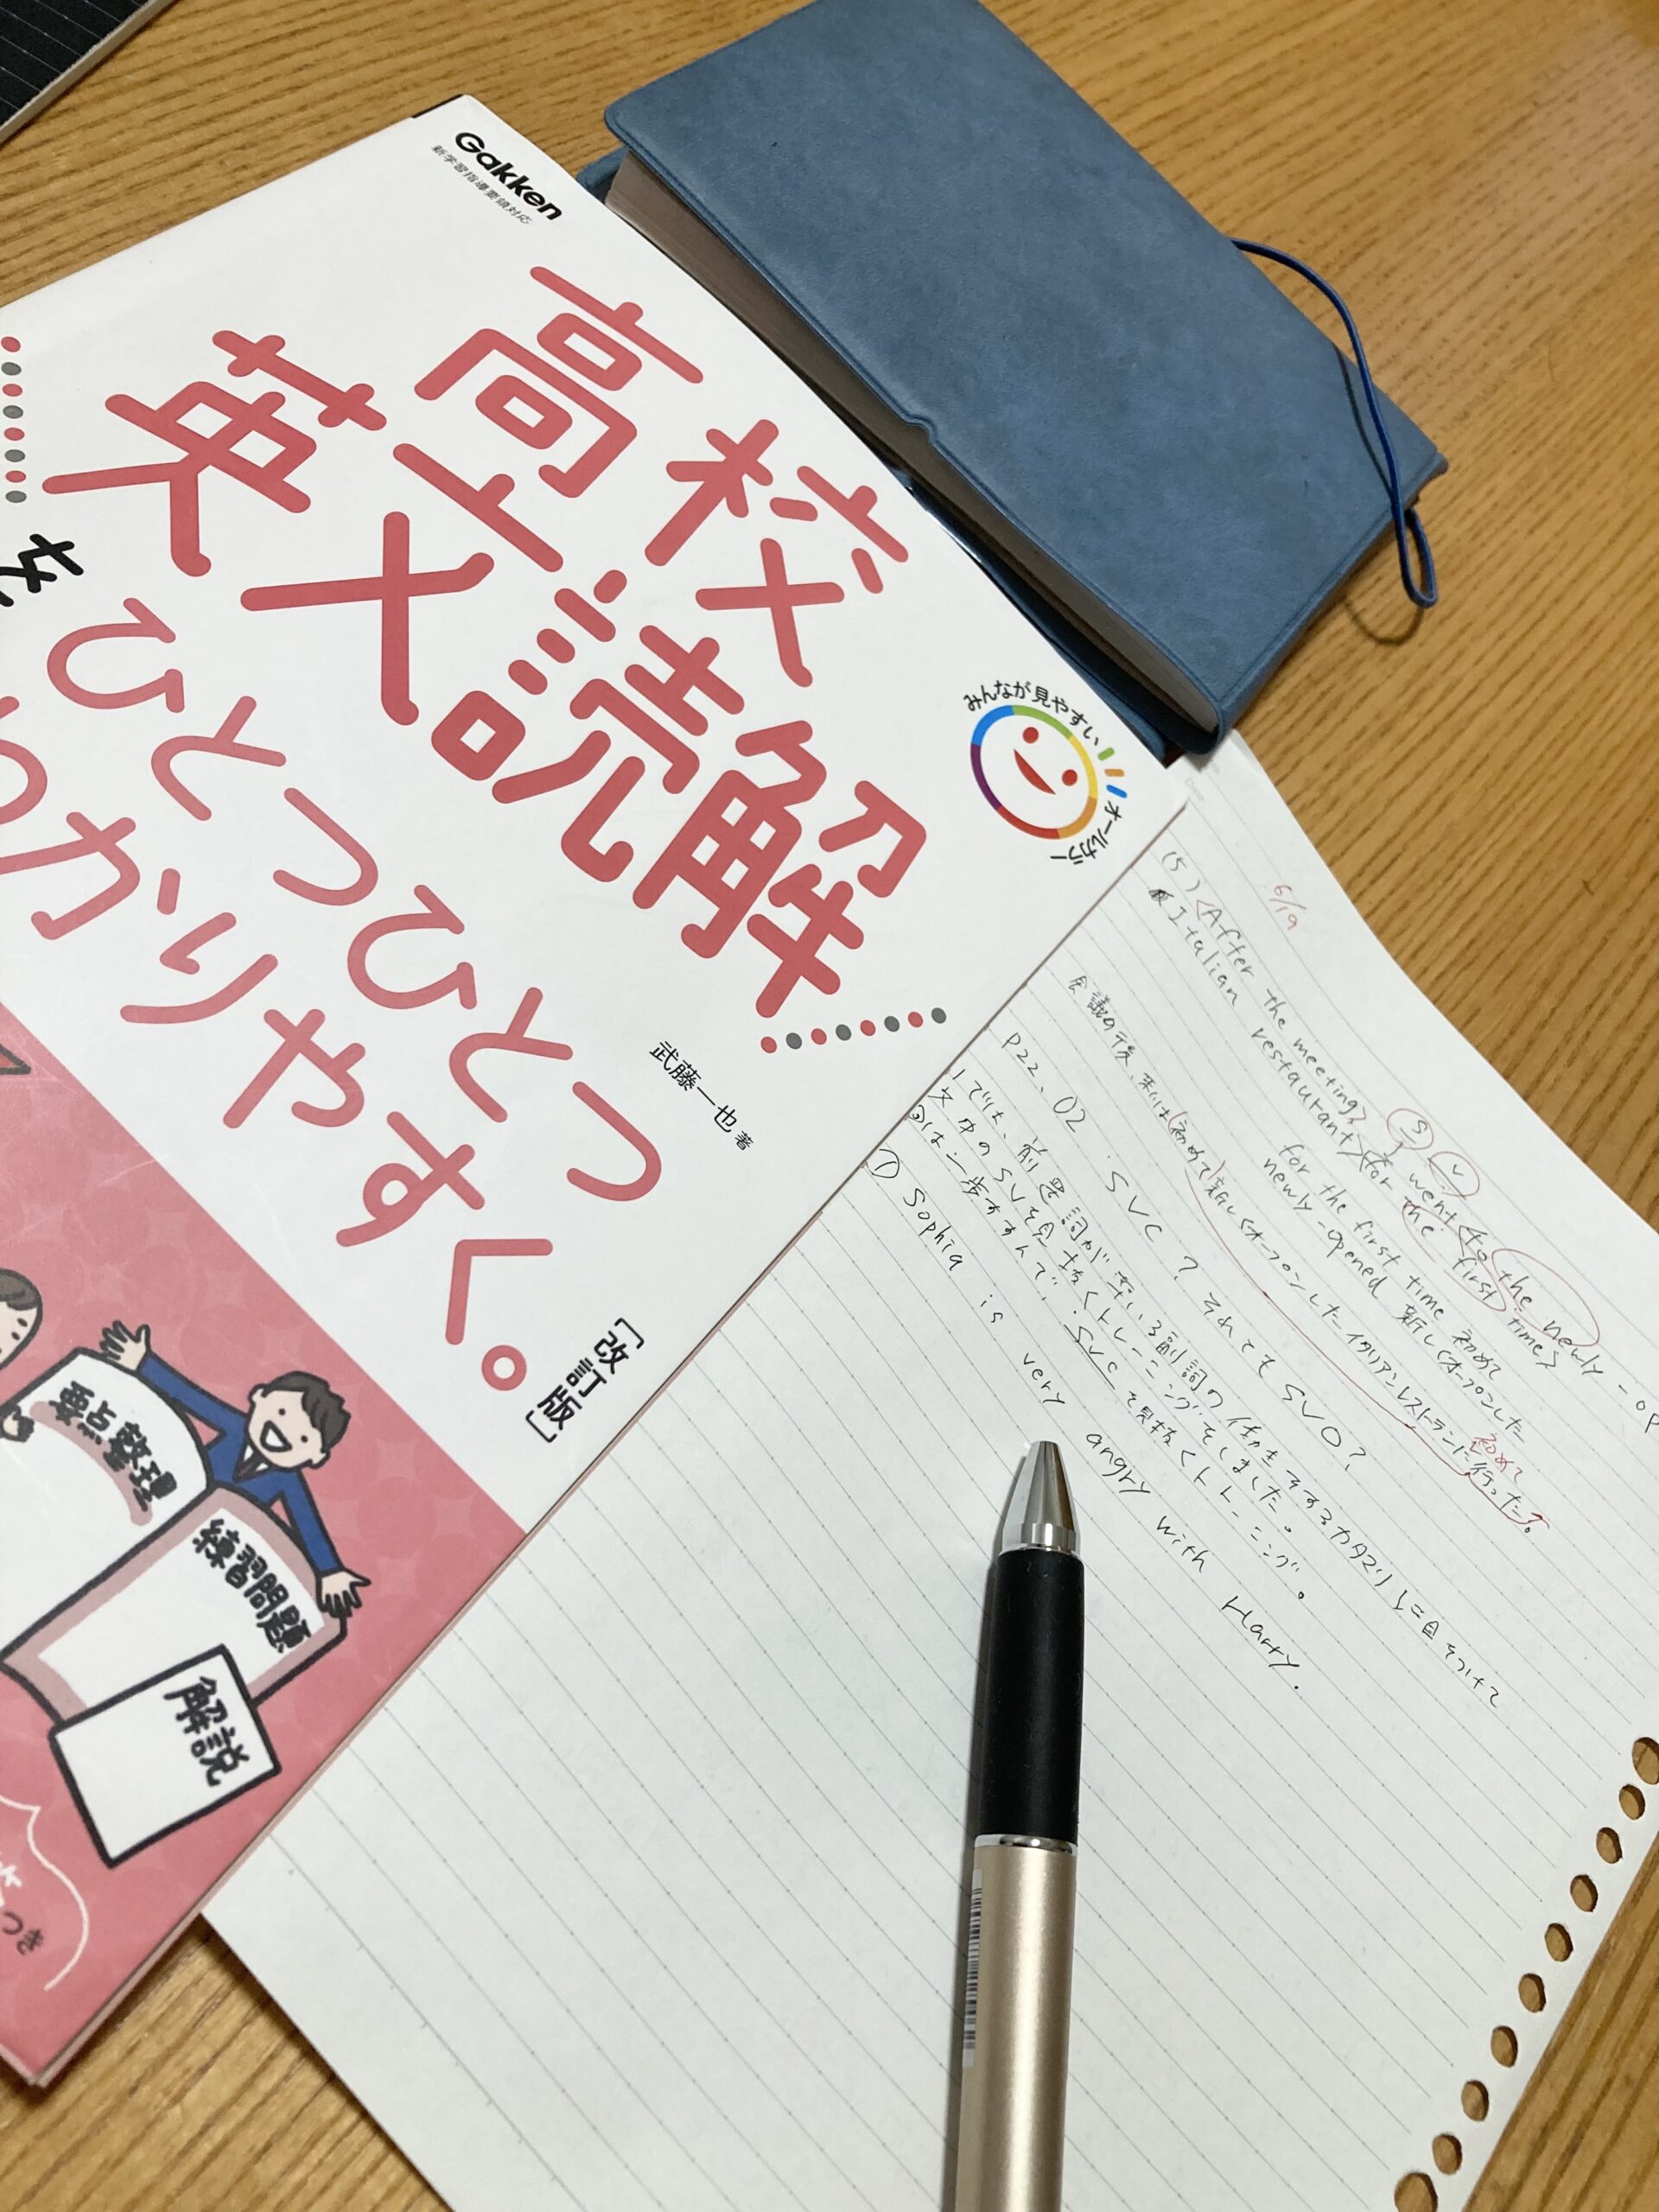 Gakken
新学習指導要領対応
高校
英文読解
を
ひとつひとつ
わかりやすく。
[改訂版]
武藤一也 著
みんなが見やすい
オールカラー
要点整理
練習問題
解説
つき
6/19
(5) <After the meeting> I went <to the newly-op
Italian restaurant> <for the first time>
S
V
for the first time 初めて
newly-opened 新しくオープンした
会議の後、私は(初めて)新しくオープンしたイタリアンレストランに行った。
初めて
P22、02 SVC? それとも SVO?
1では、前置詞が率いる副詞の働きをするカタマリに目をつけて
文中のSVを見抜くトレーニングをしました。
②は一歩すすんで、SVCを見抜くトレーニング。
① Sophia is very angry with Harry.